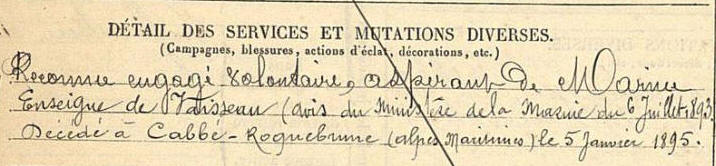 DÉTAIL DES SERVICES ET MUTATIONS DIVERSES.
(Campagnes, blessures, actions d'éclat, décorations, etc.)
Reconnu engagé volontaire, aspirant de Marine
Enseigne de Vaisseau (avis du Ministère de la Marine du 6 Juillet 1893)
Décédé à Cabbé-Roquebrune (Alpes Maritimes) le 5 Janvier 1895.